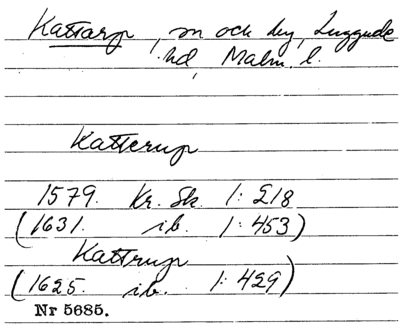 Kattarp, sn och by, Luggude
hd, Malm. l.
Katterup
1579. Kr. Sk. 1: 218
(1631. ib. 1: 453)
Kattrup
(1625. ib. 1: 429)
Nr 5685.